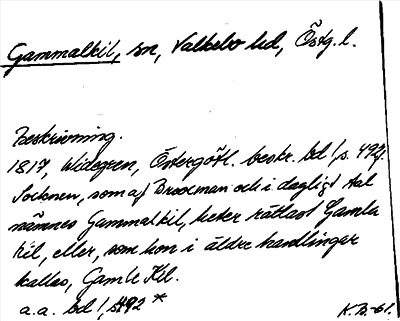 Gammalkil, sn, Valkebo hd, Östg. l.
Beskrivning.
1817, Widegren, Östergötl. beskr. bd 1, s. 492.
Socknen, som af Broocman och i dagligt tal
nämnes Gammalkil, heter rättast Gamla
Kil, eller, som hon i äldre handlingar
kallas, Gamle Kil.
a.a. bd 1, s. 492 *
K.B-61.